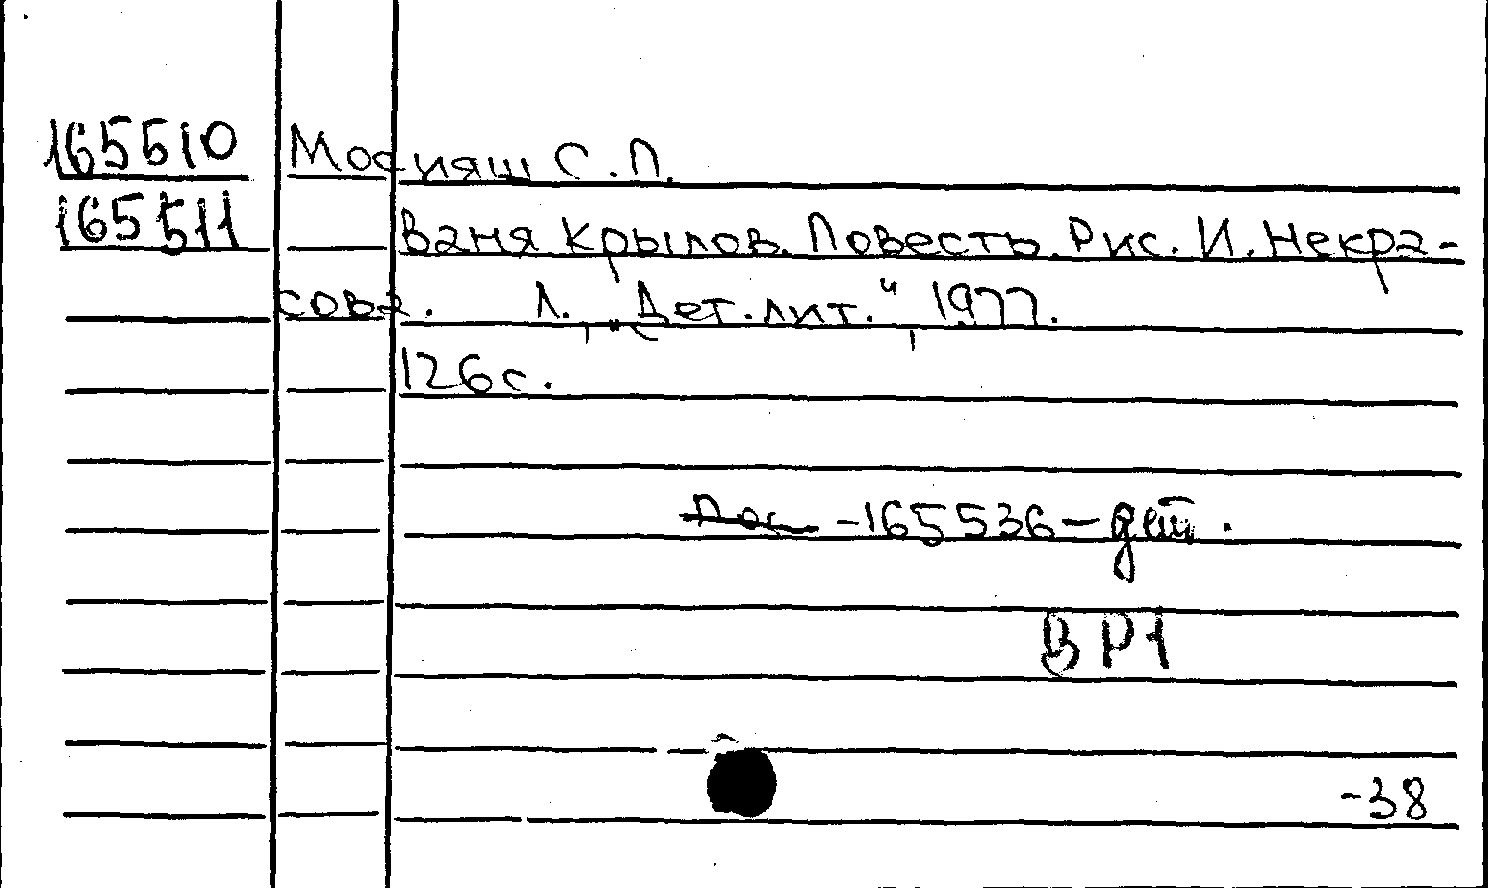 165510 Мосияш С.П.
165511 Ваня Крылов. Повесть. Рис. И. Некра-
сова. Л., „Дет. лит.“, 1977.
126 с.
-165536-дет.
ВР1
-38